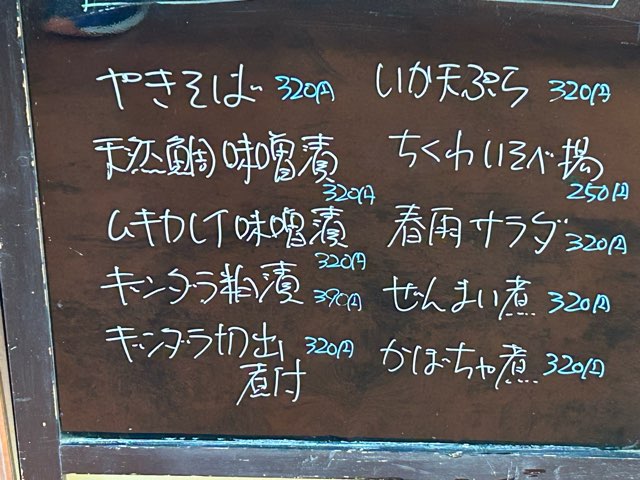 やきそば 320円
天然鯛味噌漬
320円
ムキカレイ味噌漬
320円
ギンダラ粕漬 390円
ギンダラ切出 320円
煮付
いか天ぷら 320円
ちくわいそべ揚
250円
春雨サラダ 320円
ぜんまい煮 320円
かぼちゃ煮 320円